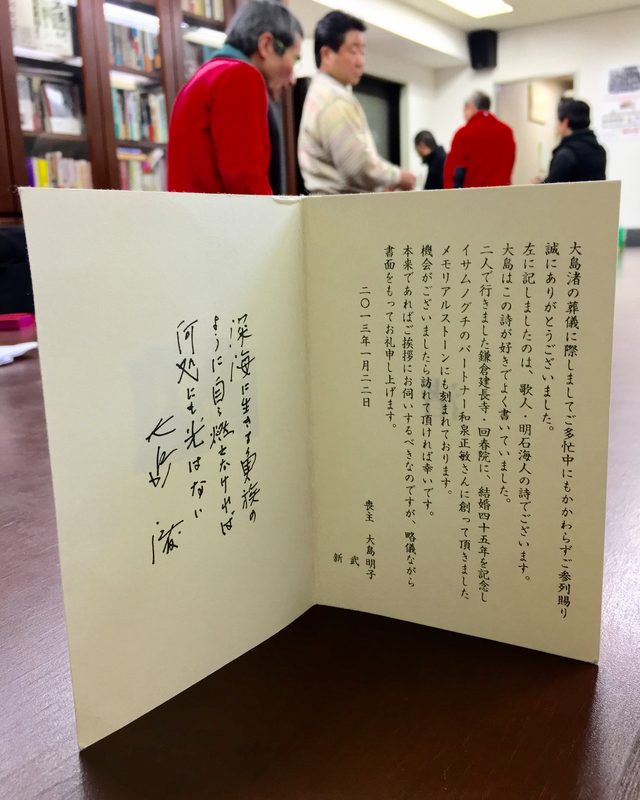 大島渚の葬儀に際しましてご多忙中にもかかわらずご参列賜り
誠にありがとうございました。
左に記しましたのは、歌人・明石海人の詩でございます。
大島はこの詩が好きでよく書いていました。
二人で行きました鎌倉建長寺・回春院に、結婚四十五年を記念し
イサムノグチのパートナー和泉正敏さんに創って頂きました
メモリアルストーンにも刻まれております。
機会がございましたら訪れて頂ければ幸いです。
本来であればご挨拶にお伺いするべきなのですが、略儀ながら
書面をもってお礼申し上げます。
二〇一三年一月二二日
喪主 大島明子
武
新
深海に生きる魚族の
ように自ら燃えなければ
何処にも光はない
大島 渚